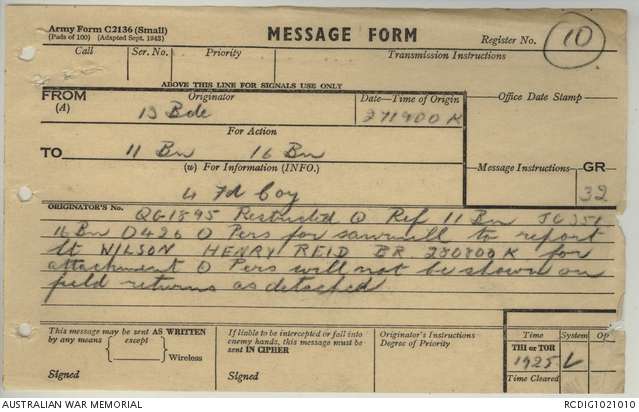 Army Form C2136 (Small)
(Pads of 100) (Adapted Sept. 1943)
MESSAGE FORM
Register No. 10
Call Ser. No. Priority Transmission Instructions
ABOVE THIS LINE FOR SIGNALS USE ONLY
FROM (A) Originator Date—Time of Origin Office Date Stamp
13 Bde 271900 K
For Action
TO 11 Bn 16 Bn
(w) For Information (INFO.) Message Instructions GR
4 Fd Coy 32
ORIGINATOR'S No.
QG1895 Restricted O Ref 11 Bn JG351
16 Bn O426 O Pers for sawmill to report
Lt WILSON HENRY REID BR 280800 K for
attachment O Pers will not be shown on
field returns as detached
This message may be sent AS WRITTEN
by any means except
Wireless
Signed
If liable to be intercepted or fall into
enemy hands, this message must be
sent IN CIPHER
Signed
Originator's Instructions
Degree of Priority
Time System Op
THI or TOR
1925 L
Time Cleared
AUSTRALIAN WAR MEMORIAL RCDIG1021010